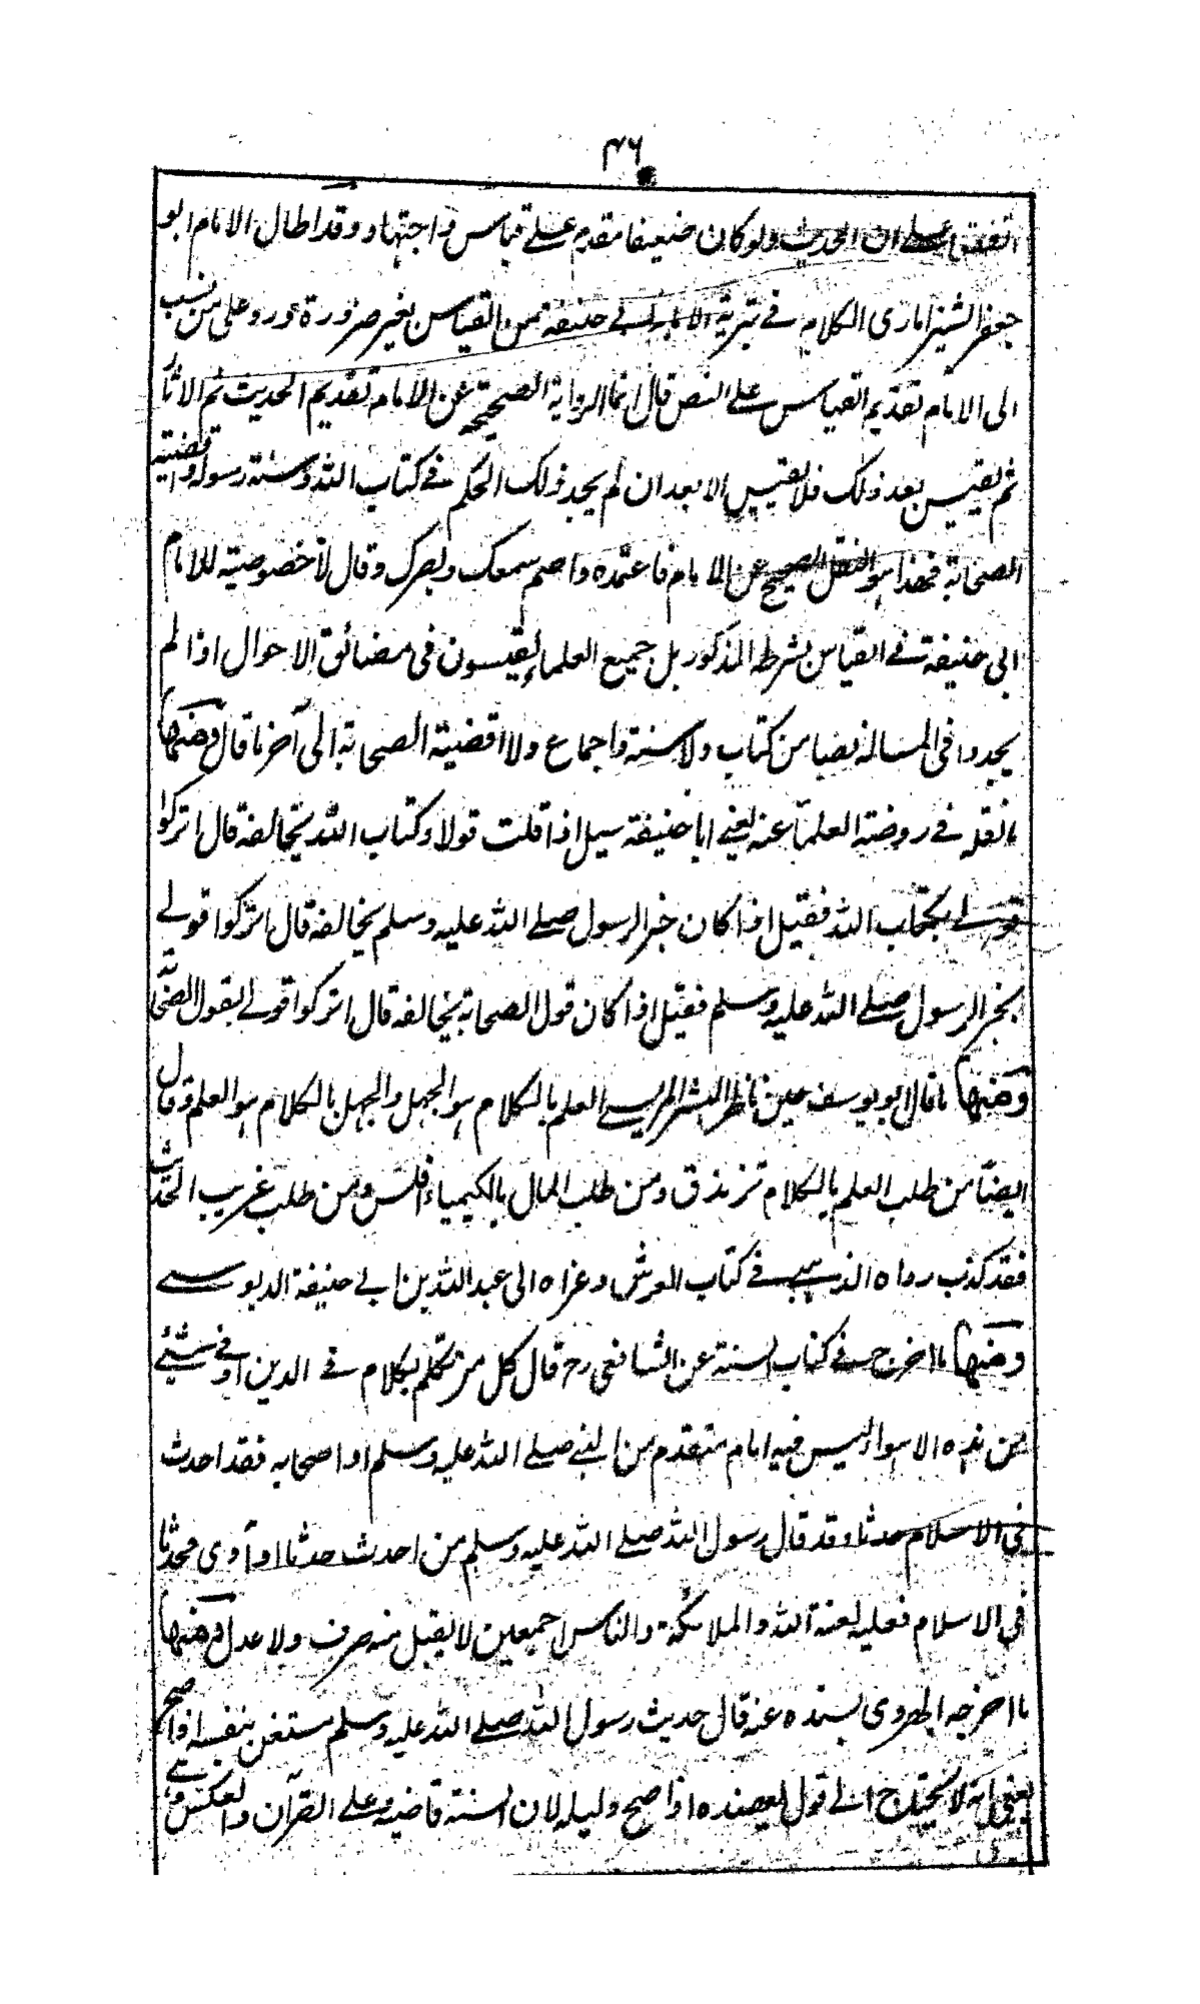 ۴۶
اتفقوا علے ان الحديث ولو كان ضعيفا مقدم علے قياس واجتهاد وقد اطال الامام ابو
جعفر الشيزاماری الكلام فے تبرية الامام ابے حنيفة من القياس بغير ضرورة ورد علی من نسب
الی الامام تقديم القياس علے النص قال انما الرواية الصحيحة عن الامام تقديم الحديث ثم الاثار
ثم يقيس بعد ذلك فلا يقيس الا بعد ان لم يجد ذلك الحكم فے كتاب الله وسنة رسوله واقضية
الصحابة فهذا هو النقل الصحيح عن الامام فاعتمده واصم سمعك وبصرك وقال لا خصوصية للامام
ابی حنيفة فے القياس بشرطه المذكور بل جميع العلماء يقيسون فی مضائق الاحوال اذا لم
يجدوا فی المسالة نصا من كتاب ولا سنة واجماع ولا اقضية الصحابة الی آخر ما قال ومنها
ما نقله فے روضة العلماء عنه يعنے ابا حنيفة سيل اذا قلت قولا وكتاب الله يخالفه قال اتركوا
قولے بكتاب الله فقيل اذا كان خبر الرسول صلے الله عليه وسلم يخالفه قال اتركوا قولے
بخبر الرسول صلے الله عليه وسلم فقيل اذا كان قول الصحابة يخالفه قال اتركوا قولے بقول الصحابة
ومنها ما قال ابو يوسف حين ناظر البشر المريسے العلم بالكلام هو الجهل والجهل بالكلام هو العلم وقال
ايضا من طلب العلم بالكلام تزندق ومن طلب المال بالكيمياء افلس ومن طلب غريب الحديث
فقد كذب رواه الذهبے فے كتاب العرش وعزاه الی عبد الله بن ابے حنيفة الدبوسے
ومنها ما اخرج فے كتاب السنة عن الشافعی رح قال كل من تكلم بكلام فے الدين او فے شئے
من هذه الاهواء ليس فيه امام متقدم من النبے صلے الله عليه وسلم او اصحابه فقد احدث
فی الاسلام حدثا وقد قال رسول الله صلے الله عليه وسلم من احدث حدثا او آوی محدثا
فی الاسلام فعليه لعنة الله والملائكة والناس اجمعين لا يقبل منه صرف ولا عدل ومنها
ما اخرجه الهروی بسنده عنه قال حديث رسول الله صلے الله عليه وسلم مستغن بنفسه اذا صح
يعنی انه لا يحتاج الے قول يعضده اذا صح دليله لان السنة قاضية علے القرآن والعكس